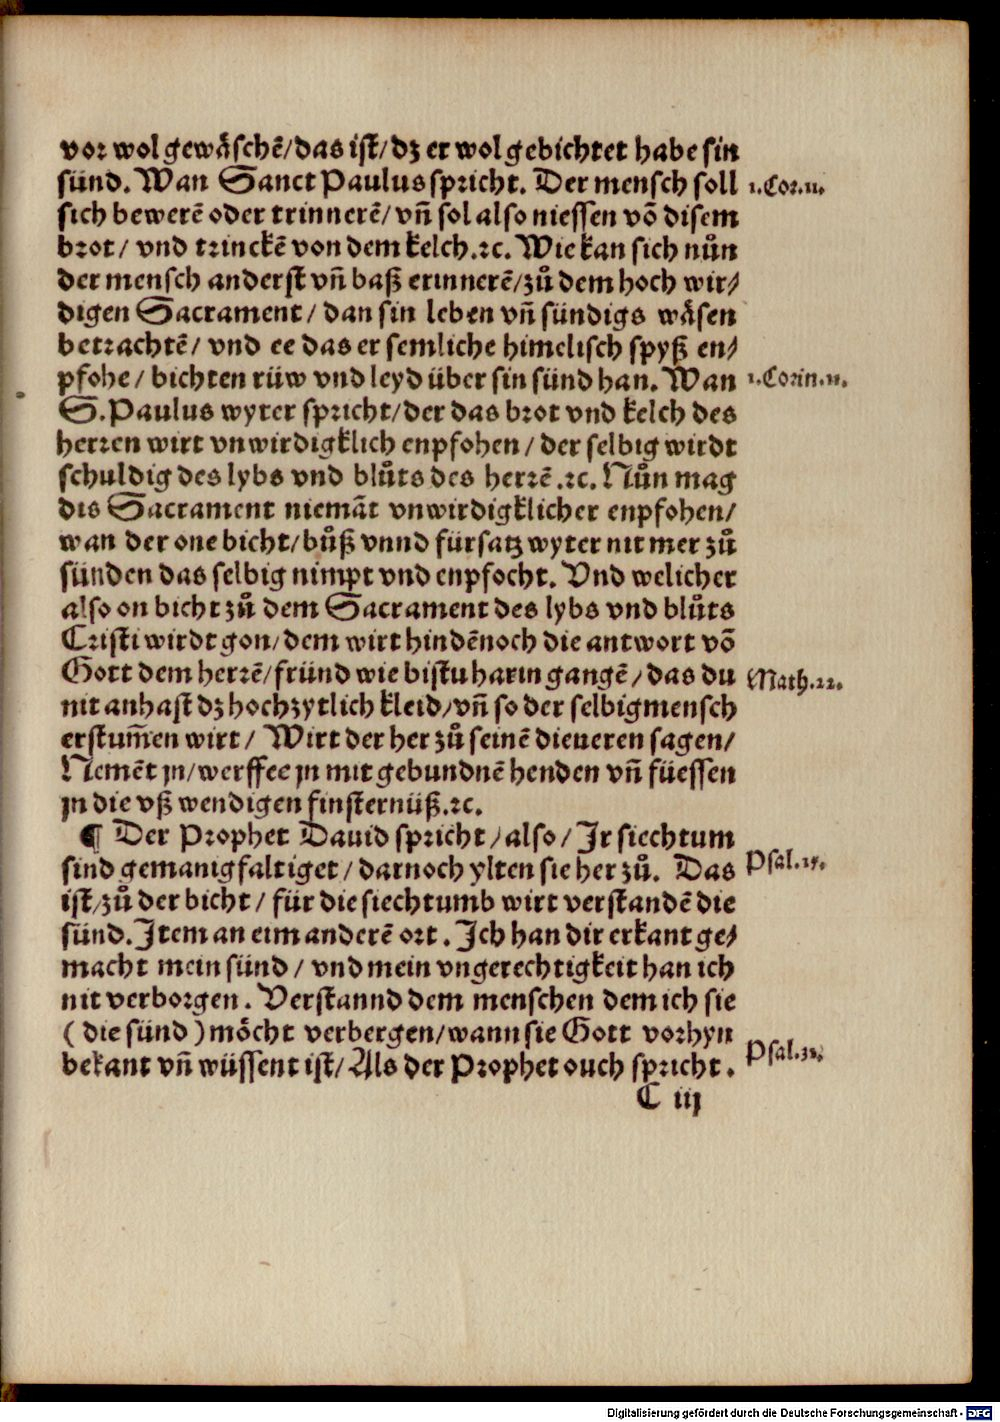 vor wol gewåschē/das ist/dz er wol gebichtet habe sin
sünd. Wan Sanct Paulus spricht. Der mensch soll
1.Cor.11.
sich bewerē oder trinnerē/vñ sol also niessen võ disem
brot/ vnd trinckē von dem kelch.ꝛc. Wie kan sich nůn
der mensch anderst vñ baß erinnerē/zů dem hoch wir/
digen Sacrament/ dan sin leben vñ sündigs wåsen
betrachtē/ vnd ee das er semliche himelisch spyß en/
pfohe/ bichten rüw vnd leyd über sin sünd han. Wan
1.Corin.11.
S.Paulus wyter spricht/der das brot vnd kelch des
herren wirt vnwirdigklich enpfohen/ der selbig wirdt
schuldig des lybs vnd blůts des herrē.ꝛc. Nůn mag
dis Sacrament niemāt vnwirdigklicher enpfohen/
wan der one bicht/bůß vnnd fürsatz wyter nit mer zů
sünden das selbig nimpt vnd enpfocht. Vnd welicher
also on bicht zů dem Sacrament des lybs vnd blůts
Cristi wirdt gon/dem wirt hindēnoch die antwort võ
Gott dem herrē/fründ wie bistu harin gangē/das du
Math.22.
nit anhast dz hochzytlich kleid/vñ so der selbig mensch
erstum̄en wirt/ Wirt der her zů seinē dieneren sagen/
Nemēt jn/werffee jn mit gebundnē henden vñ füessen
jn die vß wendigen finsternüß.ꝛc.
¶ Der Prophet Dauid spricht/also/ Jr siechtum
sind gemanigfaltiget/ darnoch ylten sie her zů. Das
Psal.15.
ist/zů der bicht/ für die siechtumb wirt verstandē die
sünd. Jtem an eim anderē ort. Jch han dir erkant ge/
macht mein sünd/ vnd mein vngerechtigkeit han ich
nit verborgen. Verstannd dem menschen dem ich sie
(die sünd) möcht verbergen/wann sie Gott vorhyn
bekant vñ wüssent ist/ Als der Prophet ouch spricht.
Psal.31.
C iij
Digitalisierung gefördert durch die Deutsche Forschungsgemeinschaft - DFG